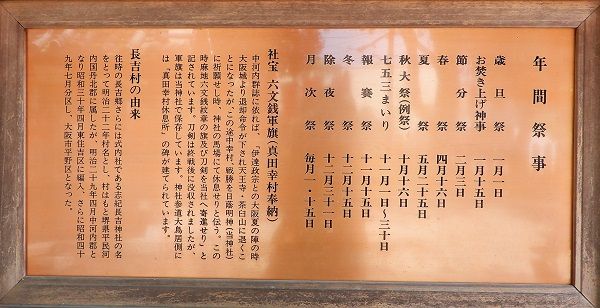 年間祭事
歳旦祭 一月一日
お焚き上げ神事 一月十五日
節分祭 二月三日
春祭 四月十六日
夏祭 五月二十五日
秋大祭(例祭) 十月十六日
七五三まいり 十一月一日〜三十日
報賽祭 十一月十五日
冬祭 十二月十五日
除夜祭 十二月三十一日
月次祭 毎月一・十五日
社宝 六文銭軍旗(真田幸村奉納)
中河内群誌に依れば、「伊達政宗との大阪夏の陣の時
大阪城より退却命令が下され天王寺・茶臼山に退くこ
とになったが、この途中幸村、戦勝を日蔭明神(当神社)
に祈願せし時、神社の馬場にて休息せりと伝う。この
時麻地六文銭紋章の旗及び刀剣を当社へ寄進せり」と
記されています。刀剣は終戦後に没収されましたが、
軍旗は当神社で保存しています。神社参道大鳥居側に
は、「真田幸村休息所」の碑が建てられています。
長吉村の由来
往時の長吉郷さらには式内社である志紀長吉神社の名
をとって明治二十二年村名とし、村はもと堺県平民河
内国丹北郡に属したが、明治二十九年四月中河内郡と
なり昭和三十年四月東住吉区に編入、さらに昭和四十
九年七月分区し、大阪市平野区となった。